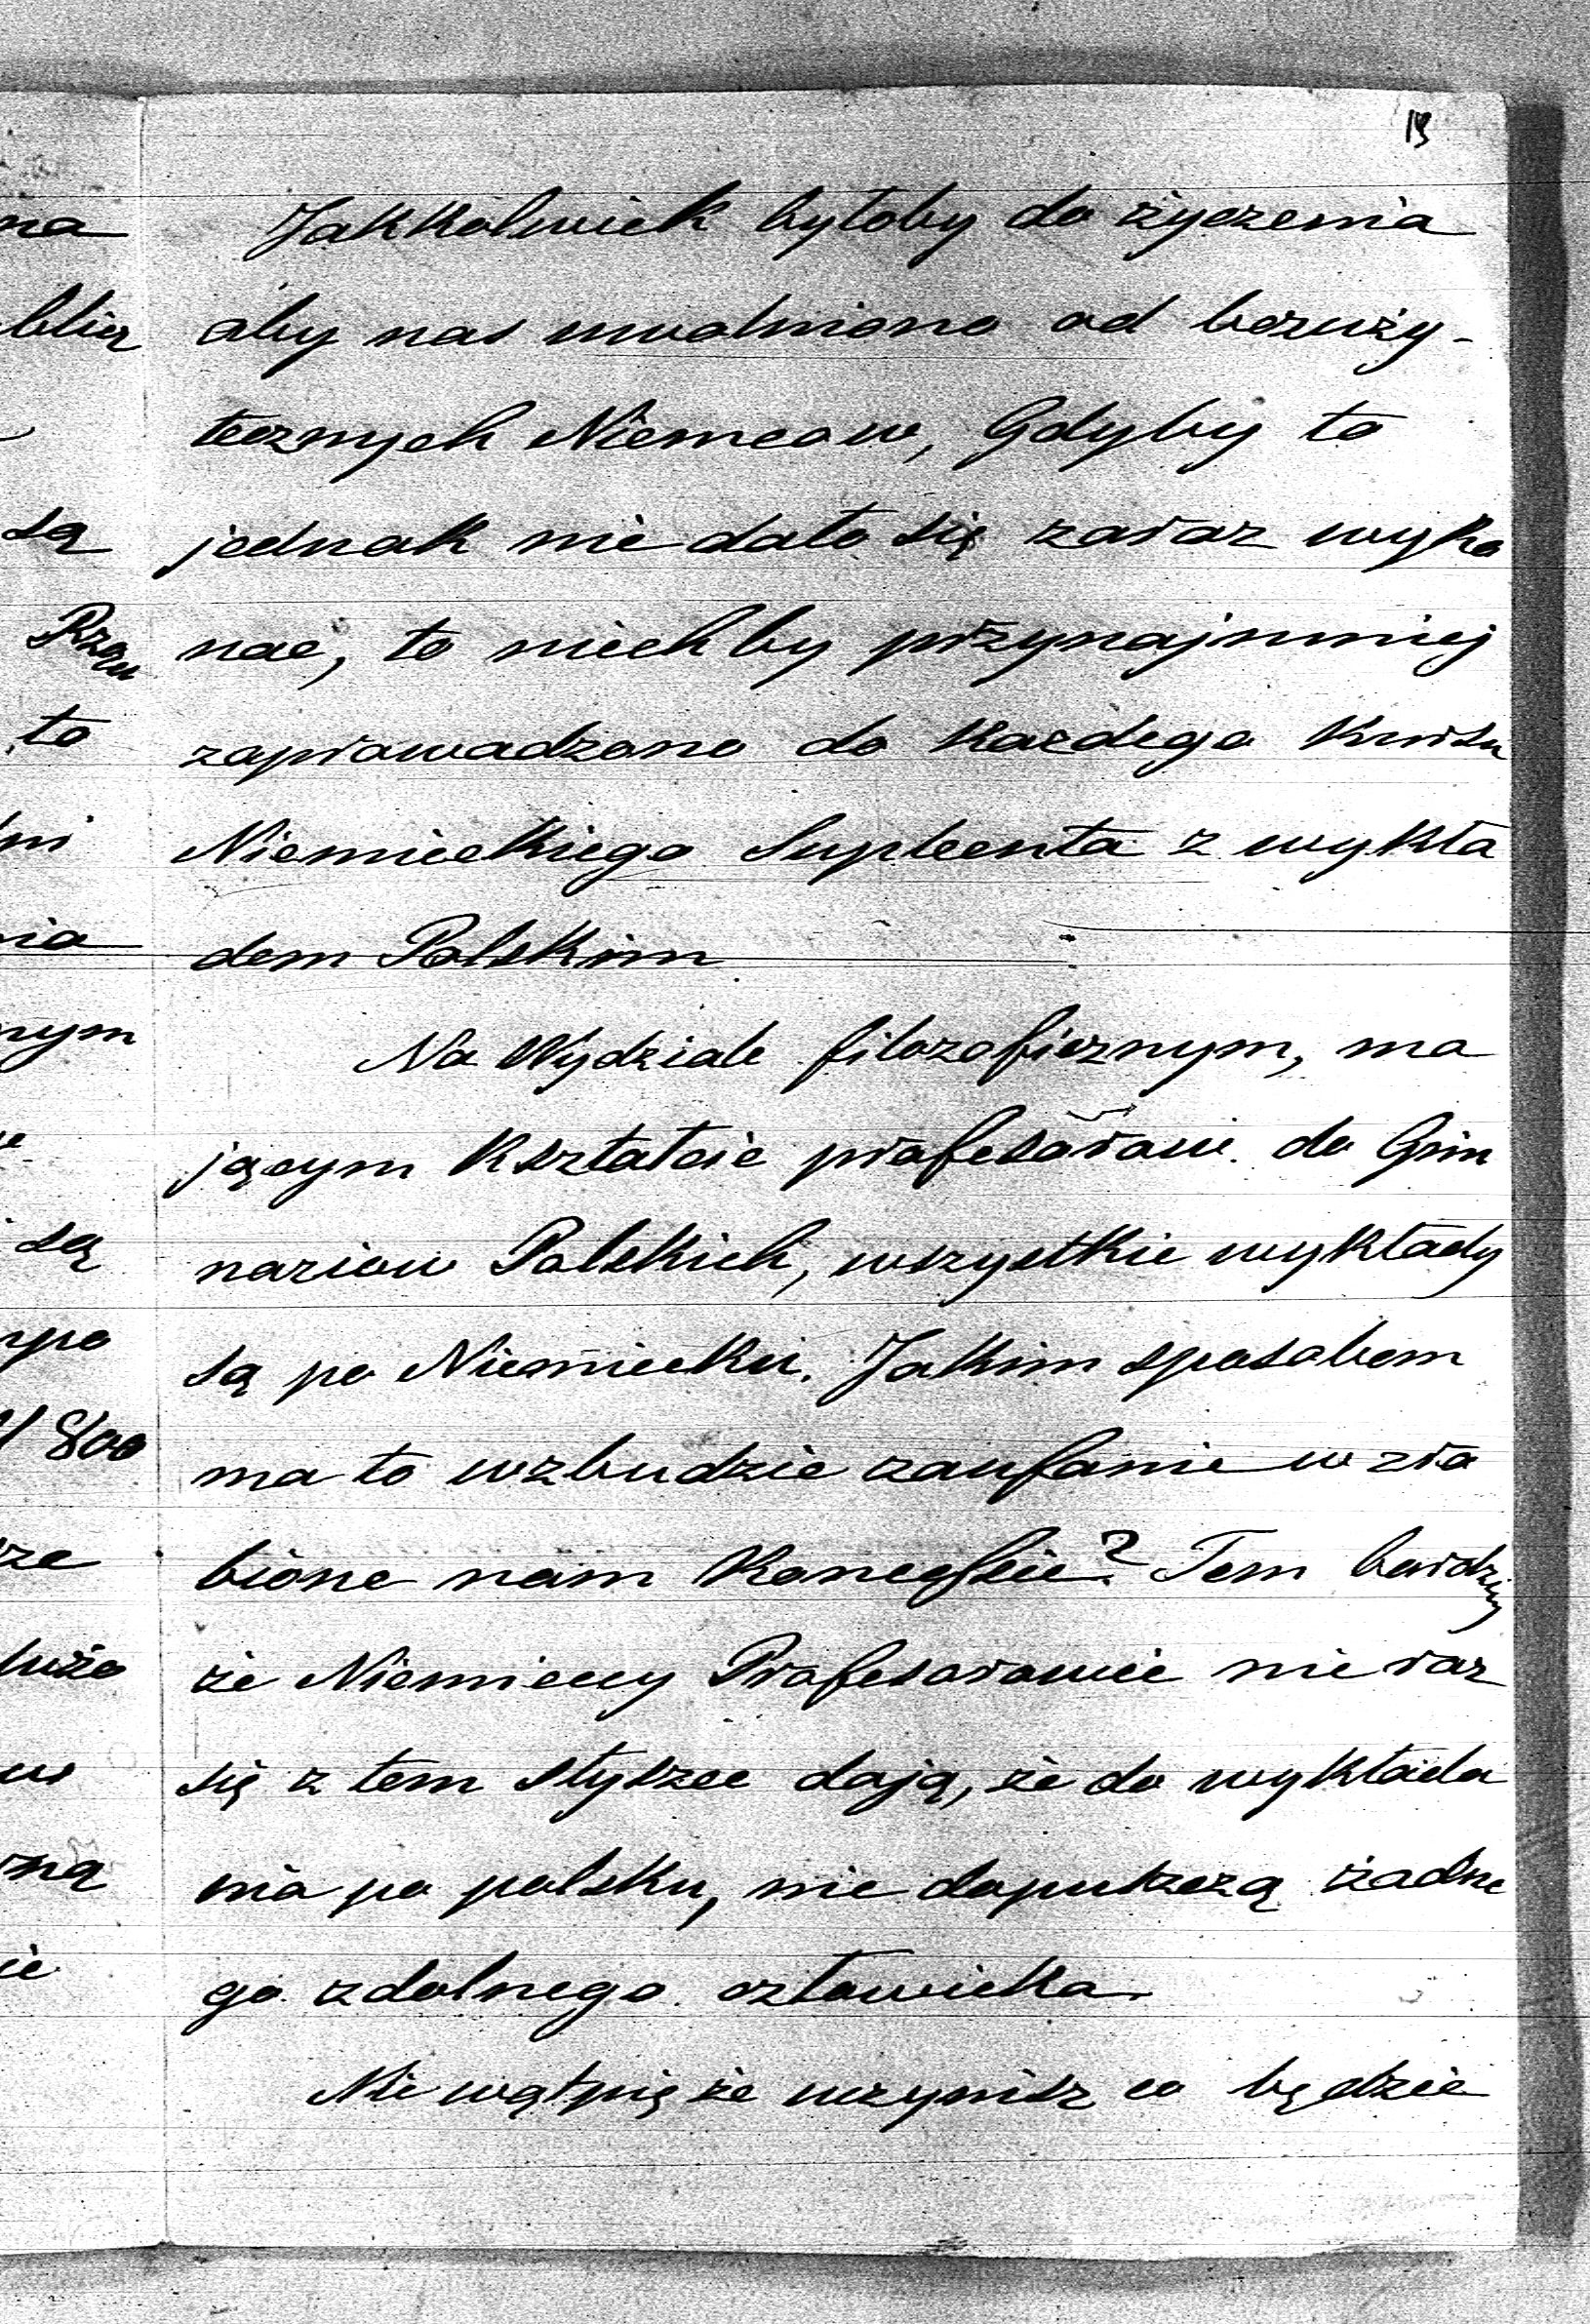 13
Jakkolwiek byłoby do życzenia
aby nas uwolniono od bezuży-
tecznych Niemcow, Gdyby to
jednak nie dało się zaraz wyko
nać, to niechby przynajmniej
zaprowadzono do każdego Kursu
Niemieckiego Supleenta z wykła
dem Polskim
Na Wydziale filozoficznym, ma
jącym Kształcić profesorow do Gim
naziow Polskich, wszystkie wykłady
są po Niemiecku. Jakim sposobem
ma to wzbudzić zaufanie w zro
bione nam Koncessie? Tem bardziej
że Niemieccy Profesorowie nie raz
się z tem słyszeć dają, że do wykłada
nia po polsku, nie dopuszczą żadne
go zdolnego człowieka.
Nie wątpię że uczynisz co będzie
na
blicz
są
Rzou
to
ni
nia
nym
są
npo
800
ze
użo
w
zną
ie